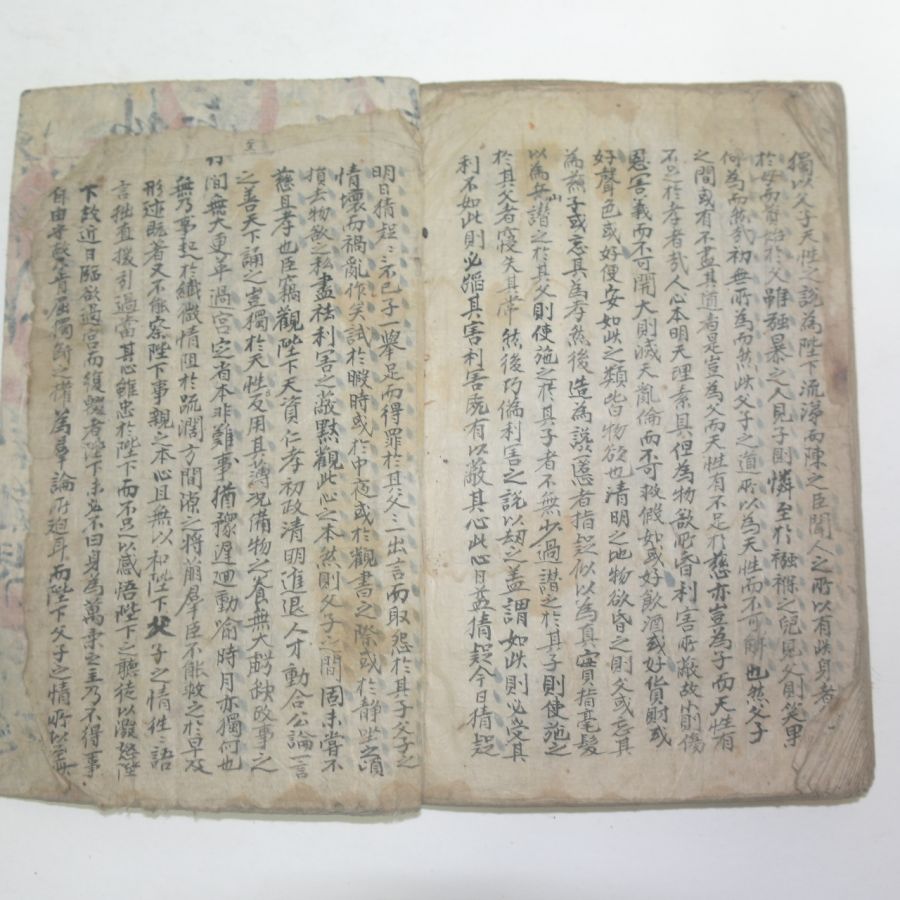 獨以父子天性之說爲陛下流涕而陳之臣聞人之所以有此身者
於母而資始於父雖强暴之人見子則憐至於襁褓之兒見父則笑果
何爲而然哉初無所爲而然此父子之道所以爲天性而不可解也然父子
之間或有不盡其道者是豈爲父而天性有不足於慈亦豈爲子而天性有
不足於孝者哉人心本明天理素具但爲物欲所昏利害所蔽故小則傷
恩害義而不可開大則滅天亂倫而不可救假如或好飮酒或好貨財或
好聲色或好便安如此之類皆物欲也淸明之地物欲昏之則父或忘其
爲慈子或忘其爲孝然後造爲讒慝者指疑似以爲眞實指毫髮
以爲兵譖之於其父則使施之於其子者不無少過譖之於其子則使施之
於其父者寖失其常然後巧倫利害之說以劫之盖謂如此則必受其
利不如此則必罹其害利害旣有以蔽其心此心日益猜疑今日猜疑
明日猜疑〻〻不已子一擧足而得罪於其父〻出言而取怨於其子父子之
情壞而禍亂作矣試於暇時或於中夜或於觀書之際或於靜坐之頃
捐去物欲之私盡袪利害之蔽黙觀此心之本然則父子之間固未嘗不
慈且孝也臣竊觀陛下天資仁孝初政淸明進退人才動合公論一言
之善天下誦之豈獨於天性反用其薄况備物之養無大闕缺政事之
間無大更革過宮定省本非難事猶豫遲廻動喻時月亦獨何也
無乃事起於纖微情阻於疏濶方間隙之將萌羣臣不能救之於早及
形迹旣著又不能察陛下事親之本心且無以和陛下父子之情徃〻語
言拙直援引過當其心雖忠於陛下而不足以感悟陛下之聽徒以激怒陛
下故近日臨欲過宮而復輟者陛下未必不曰身爲萬乘之主乃不得事
自由 獨斷之權爲羣論所迫耳而陛下父子之情所以至此